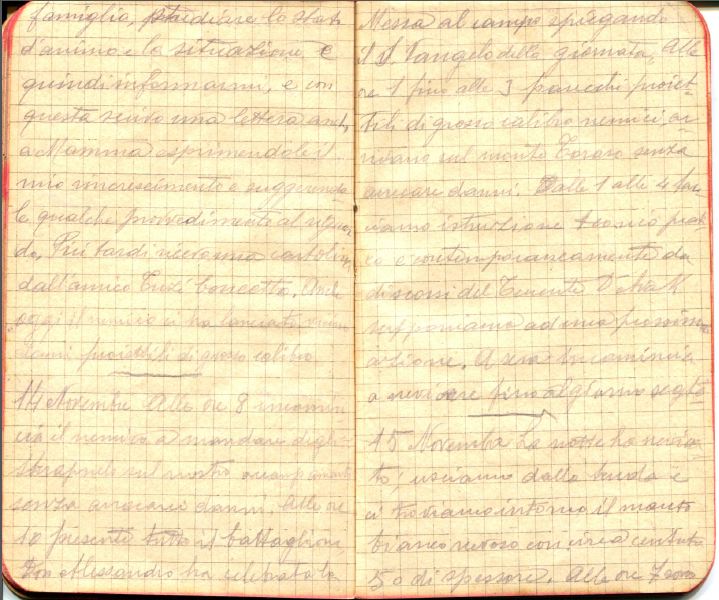 famiglia, studiare lo stato
d'animo e la situazione e
quindi informarmi, e con
questa scrivo una lettera anche
a Mamma esprimendole il
mio rincrescimento e suggerendo
le qualche provvedimento al riguar
do. Più tardi ricevo una cartolina
dall'amico Boscotto. Anche
oggi il nemico ci ha lanciato, senza
danni proiettili di grosso calibro
14 Novembre Alle ore 8 incomin
cia il nemico a mandare degli
sbrapnels sul nostro accampamento
senza arrecarci danni. Alle ore
10 presente tutto il battaglione,
Don Alessandro ha celebrata la
Messa al campo spiegando
il S. Vangelo della giornata. Alle
ore 1 fino alle 3 parecchi proiet
tili di grosso calibro nemici, ar
rivano sul monte senza
arrecare danni. Dalle 1 alle 4 fac
ciamo istruzione teorico prat
co e contemporaneamente da
discorsi del Tenente
supponiamo ad una prossima
azione. A sera incomincia
a nevicare fino al giorno segte
15 Novembre La notte ha nevica
to; usciamo dalla tenda e
ci troviamo intorno il manto
bianco nevoso con circa centim
50 di spessore. Alle ore 7 sono